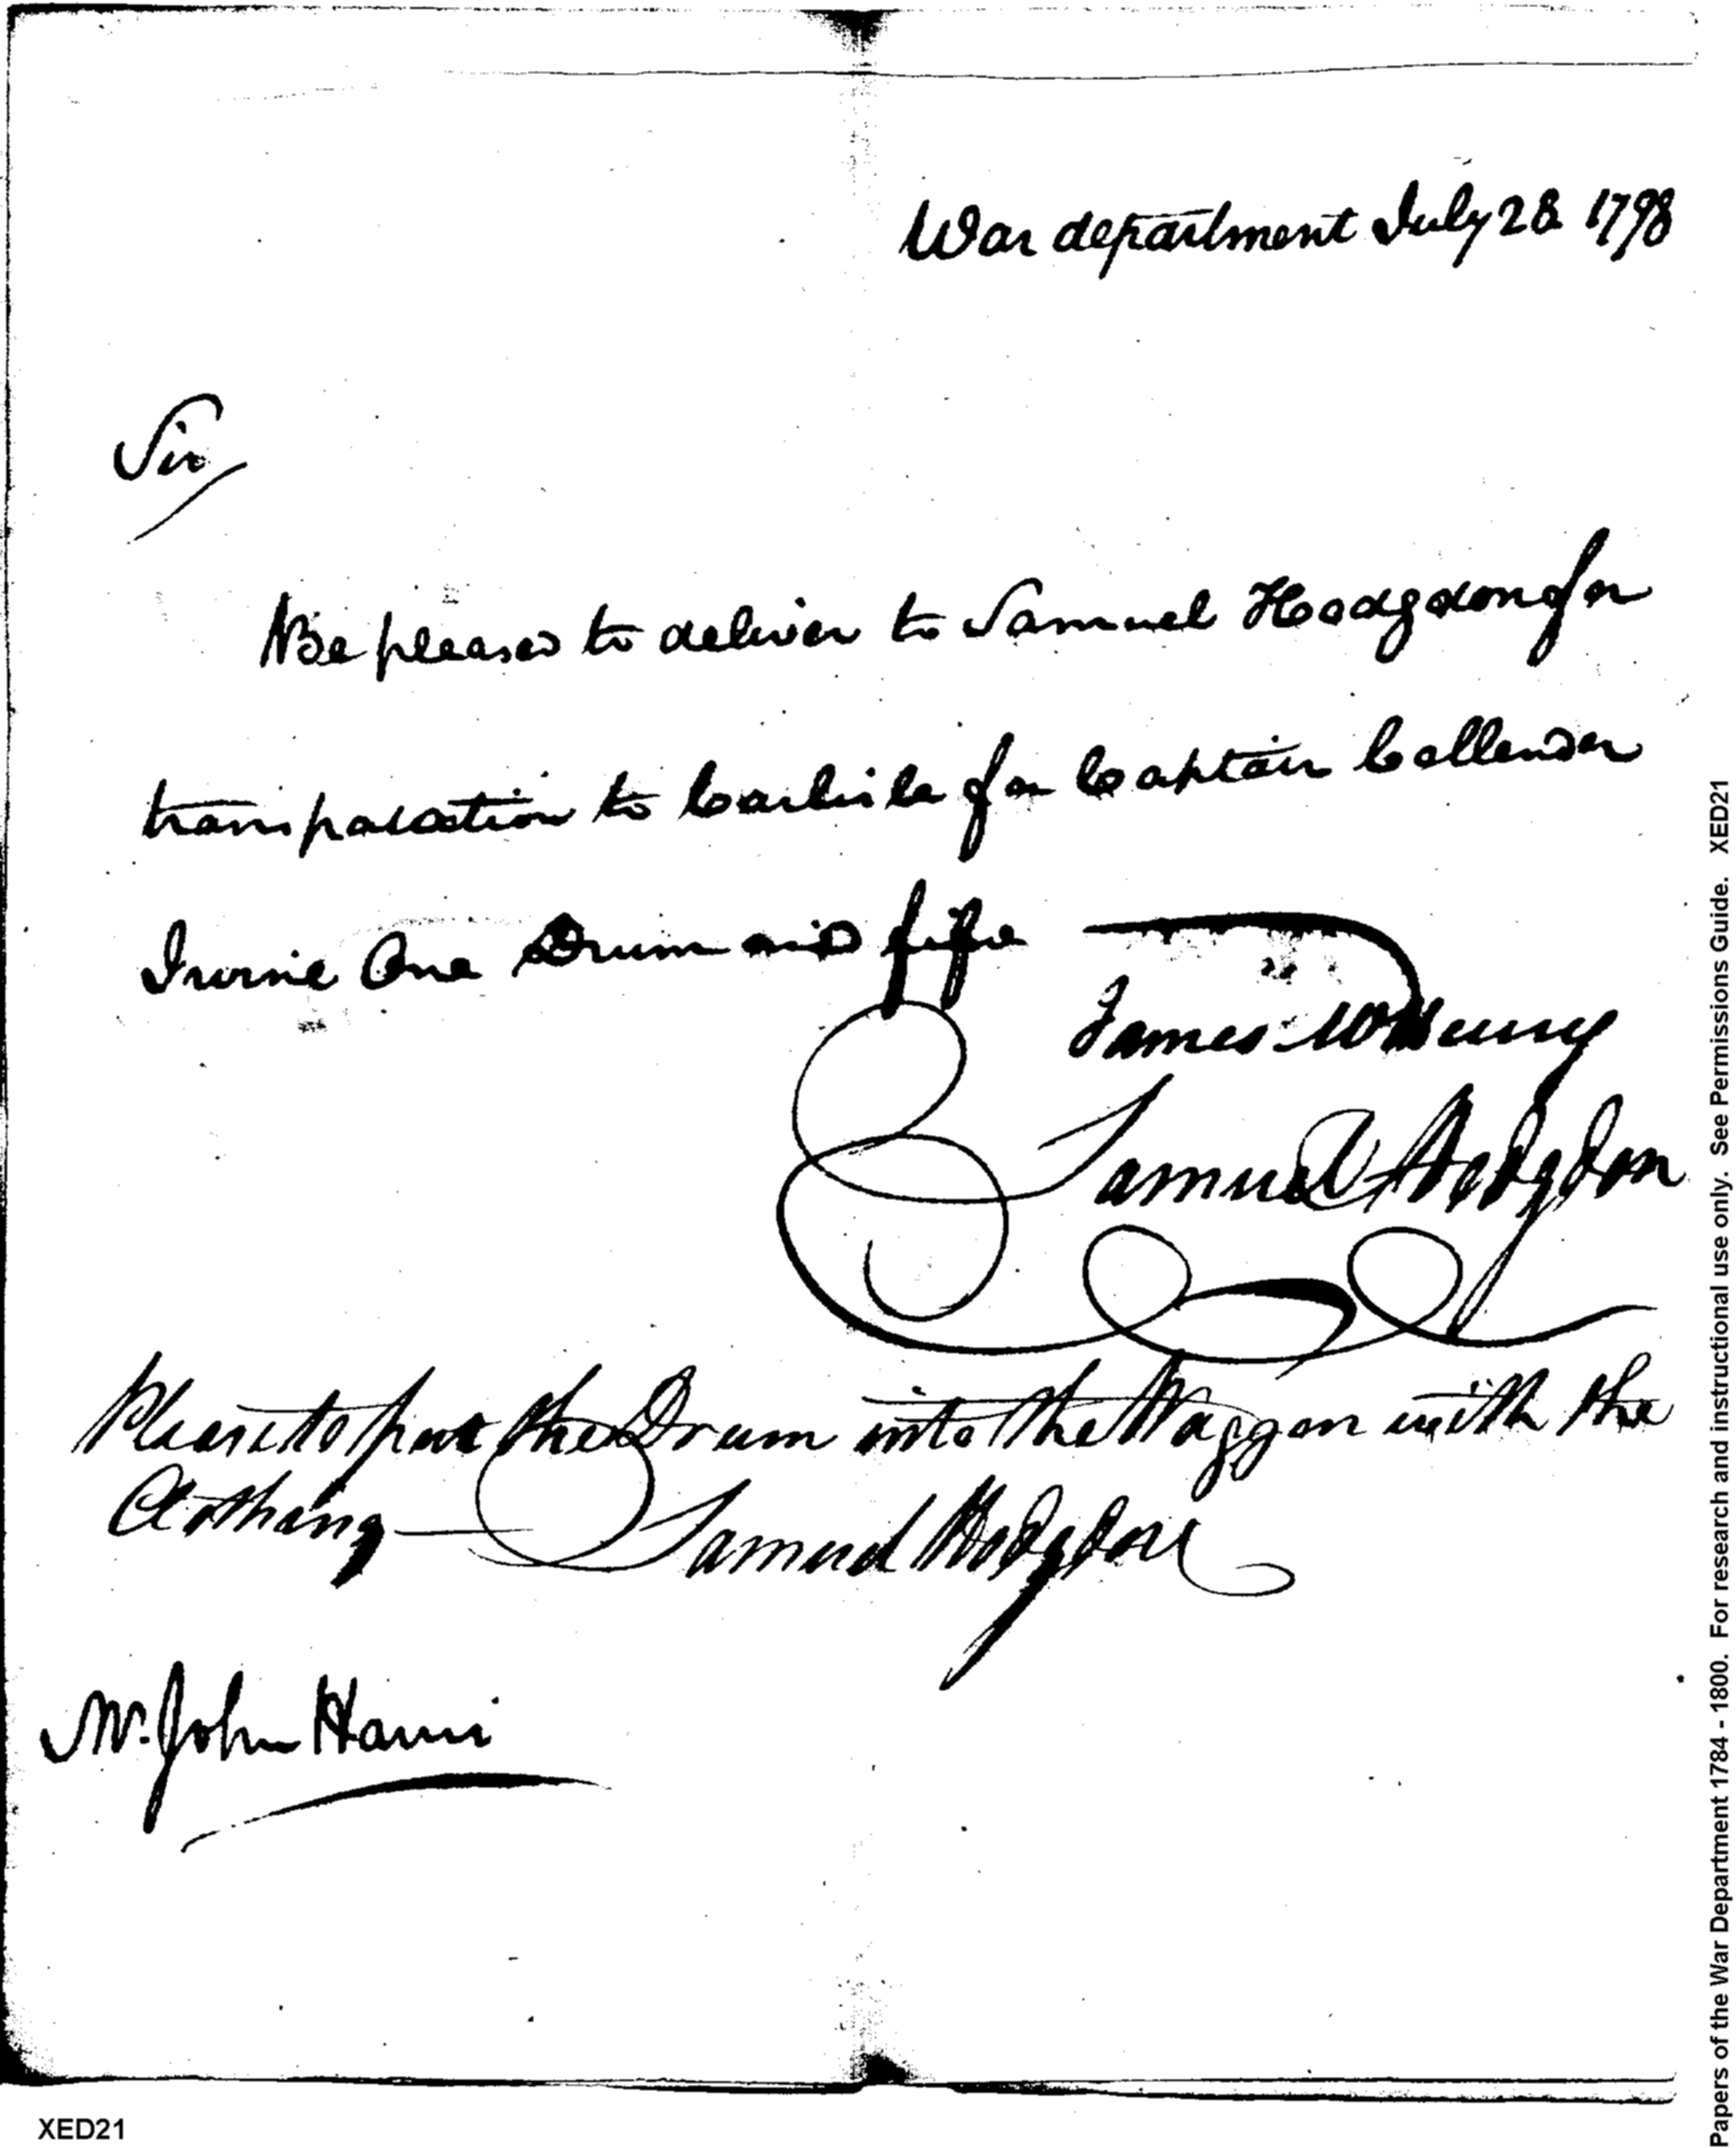 War department July 28 1798
Sir
Be pleased to deliver to Samuel Hodgdon for
transportation to Carlisle for Captain Callender
Irvine One Drum and fife
James McHenry
Samuel Hodgdon
Please to put the Drum into the Waggon with the
Clothing — Samuel Hodgdon
Mr. John Harris
XED21
Papers of the War Department 1784 - 1800. For research and instructional use only. See Permissions Guide. XED21